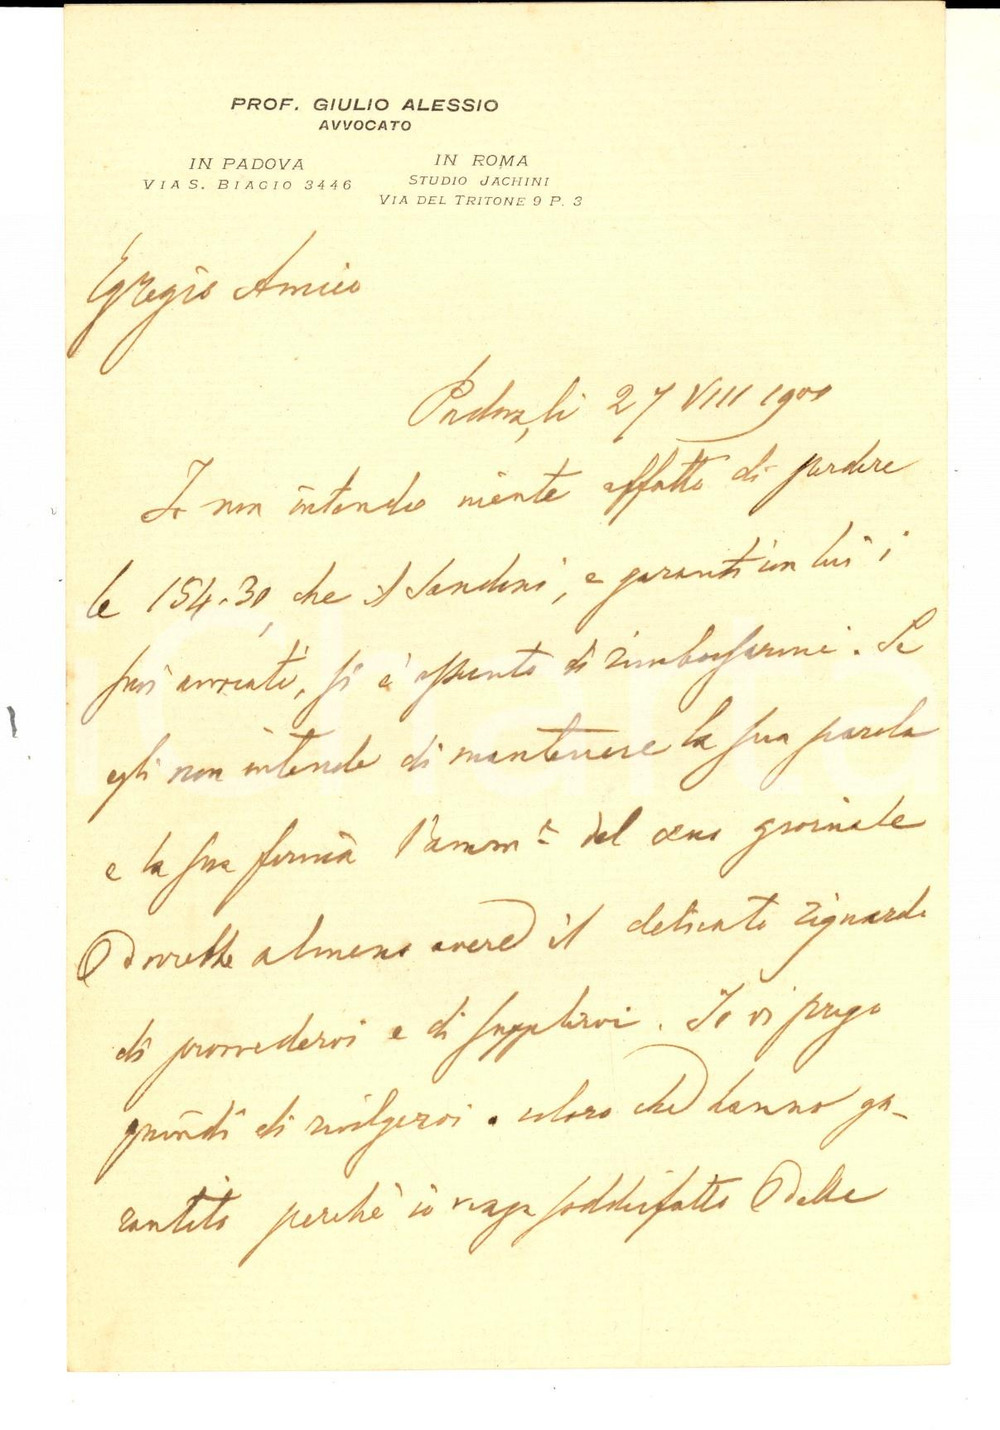 PROF. GIULIO ALESSIO
AVVOCATO
IN PADOVA
VIA S. BIAGIO 3446
IN ROMA
STUDIO JACHINI
VIA DEL TRITONE 9 P. 3
Egregio Amico
Padova, li 27 VIII 1900
Io non intendo niente affatto di perdere
le 154.30, che il Sandoni, e garanti con lui i
suoi avvocati, si è assunto di rimborsarmi. Se
egli non intende di mantenere la sua parola
e la sua firma l'amm.e del giornale
dovrebbe almeno avere il delicato riguardo
di provvedervi e di supplirvi. Io vi prego
quindi di rivolgervi a coloro che hanno ga-
rantito perchè io venga soddisfatto delle